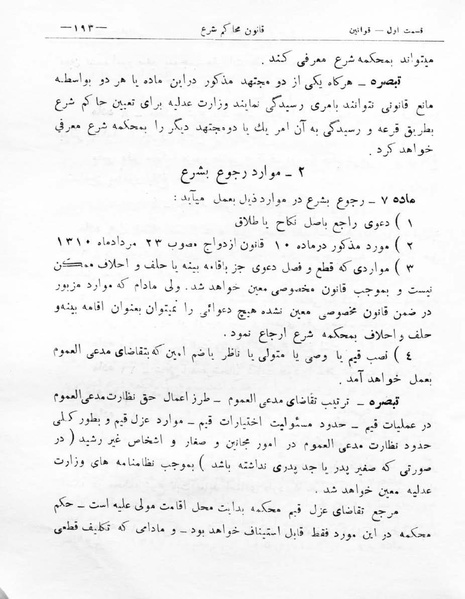 قسمت اول — قوانین
قانون محاکم شرع
—۱۹۳—
میتواند بمحکمه شرع معرفی کند.
تبصره — هرگاه یکی از دو مجتهد مذکور دراین ماده یا هر دو بواسطه
مانع قانونی نتوانند بامری رسیدگی نمایند وزارت عدلیه برای تعیین حاکم شرع
بطریق قرعه و رسیدگی به آن امر یك یا دومجتهد دیگر را بمحکمه شرع معرفی
خواهد کرد.
۲ — موارد رجوع بشرع
ماده ۷ — رجوع بشرع در موارد ذیل بعمل میآید :
۱ ) دعوی راجع باصل نکاح یا طلاق
۲ ) مورد مذکور درماده ۱۰ قانون ازدواج مصوب ۲۳ مردادماه ۱۳۱۰
۳ ) مواردی که قطع و فصل دعوی جز باقامه بینه یا حلف و احلاف ممکن
نیست و بموجب قانون مخصوصی معین خواهد شد. ولی مادام که موارد مزبور
در ضمن قانون مخصوصی معین نشده هیچ دعوائی را نمیتوان بعنوان اقامه بینه‌و
حلف و احلاف بمحکمه شرع ارجاع نمود.
٤ ) نصب قیم یا وصی یا متولی یا ناظر یا ضم امین که بتقاضای مدعی العموم
بعمل خواهد آمد.
تبصره — ترتیب تقاضای مدعی العموم — طرز اعمال حق نظارت مدعی‌العموم
در عملیات قیم — حدود مسئولیت اختیارات قیم — موارد عزل قیم و بطور کلی
حدود نظارت مدعی العموم در امور مجانین و صغار و اشخاص غیر رشید ( در
صورتی که صغیر پدر یا جد پدری نداشته باشد ) بموجب نظامنامه های وزارت
عدلیه معین خواهد شد.
مرجع تقاضای عزل قیم محکمه بدایت محل اقامت مولی علیه است — حکم
محکمه در این مورد فقط قابل استیناف خواهد بود — و مادامی که تکلیف قطعی